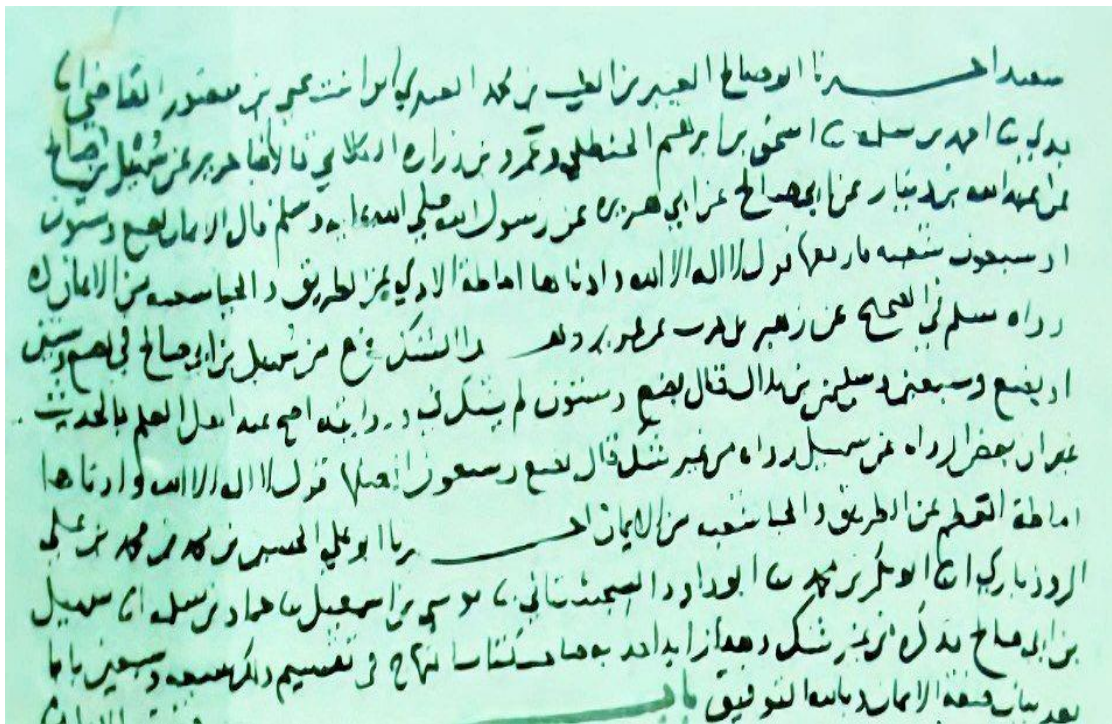 سعيد اخبرنا ابو صالح العنبر بن الطيب بن محمد العنبري ابن ابنت يحيى بن منصور القاضي انا
ثنا احمد بن سلمة ثنا اسحق بن ابرهيم الحنظلي وعمرو بن زراره الكلابي قالا ثنا جرير عن سهيل بن ابي صالح
عن عبد الله بن دينار عن ابي صالح عن ابي هريره عن رسول الله صلى الله عليه وسلم قال الايمان بضع وستون
او سبعون شعبه فارفعها قول لا اله الا الله وادناها اماطة الاذى عن الطريق والحيا شعبه من الايمان
رواه مسلم في الصحيح عن زهير بن حرب عن جرير الشك وقع من سهيل بن ابي صالح في بضع وستين
او بضع وسبعين وسليمن بن بلال قال بضع وستون لم يشك وروايته اصح عند اهل العلم بالحديث
غير ان بعض الرواه عن سهيل رواه من غير شك قال بضع وسبعون افضلها قول لا اله الا الله وادناها
اماطة العظم عن الطريق والحيا شعبه من الايمان اخبرنا ابو علي الحسين بن محمد بن محمد بن علي
الروذباري انا ابو بكر بن محمد ثنا ابو داود السجستاني ثنا موسى بن اسمعيل ثنا حماد بن سلمه انا سهيل
بن ابي صالح فذكره من غير شك وهذا زايد اخذ به صاحب كتاب المنهاج في تقسيم ذلك سبعه وسبعين بابا
بعد بيان صفة الايمان وبالله التوفيق باب